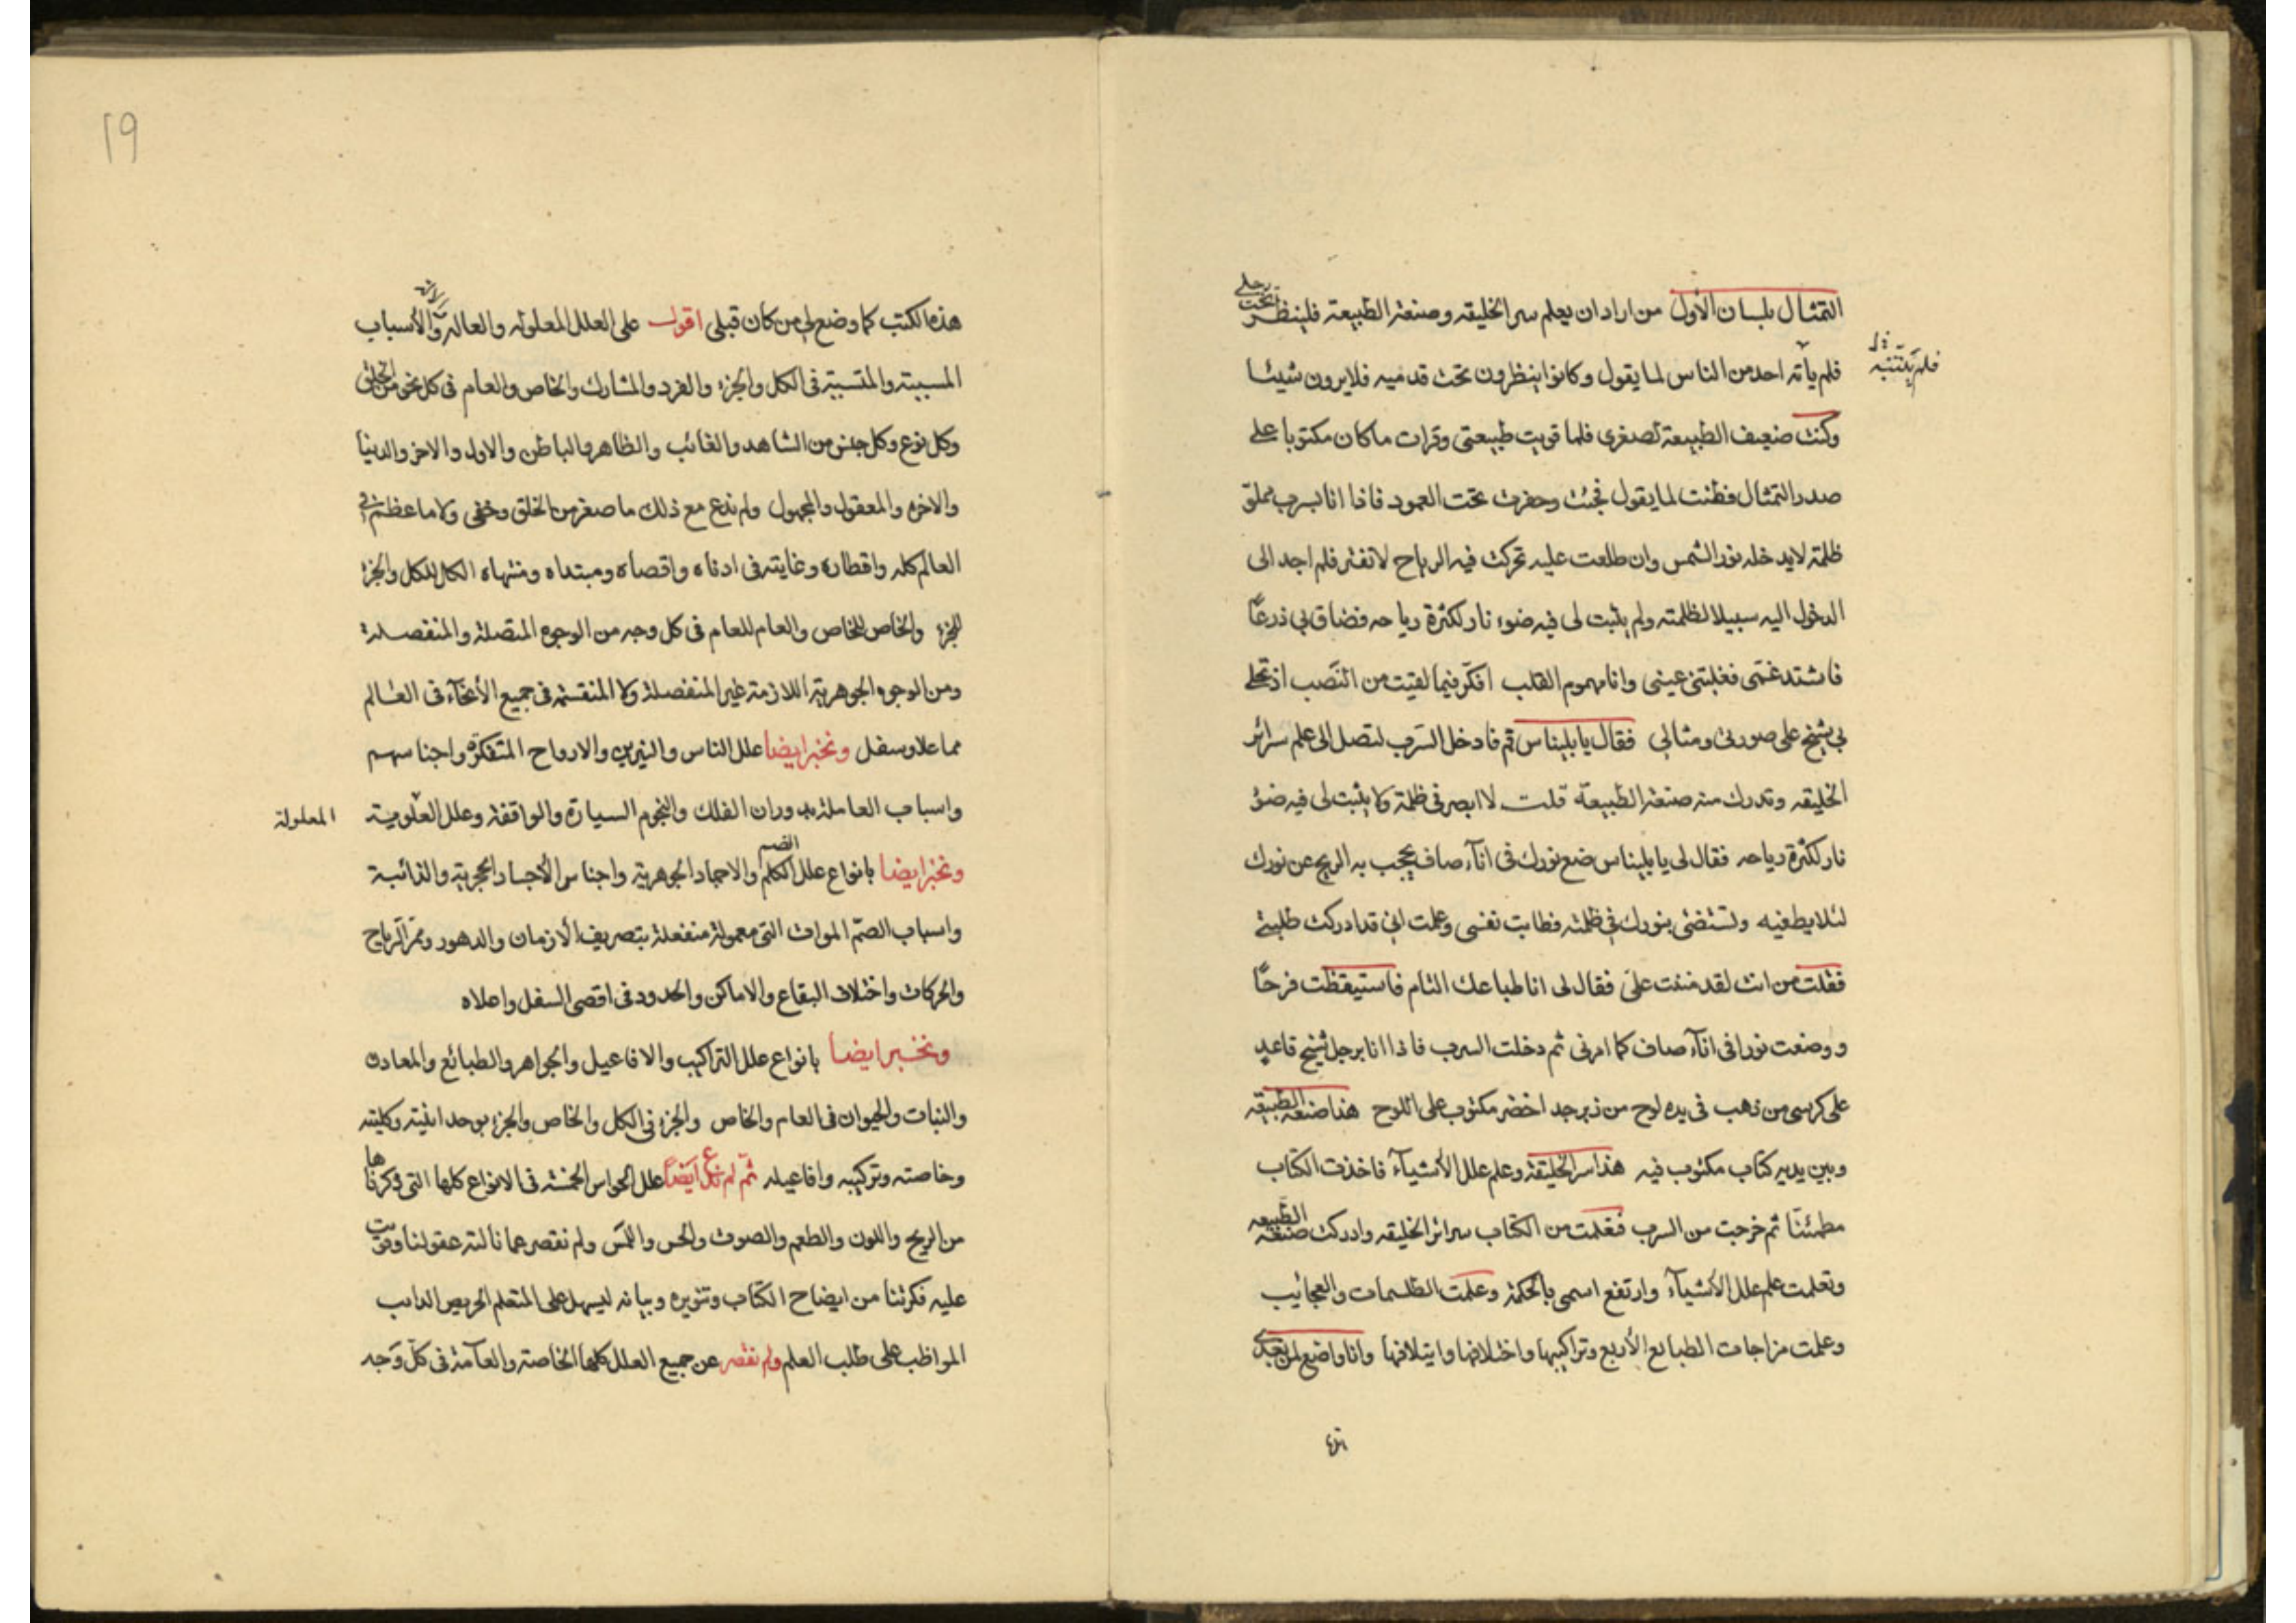 التمثال بلسان الأول من اراد ان يعلم سر الخليقه وصنعة الطبيعة فلينظر تحت رجلي
فلم يأته احد من الناس لما يقول وكانوا ينظرون تحت قدميه فلا يرون شيئا
فلم ينتبه
وكنت ضعيف الطبيعة لصغرى فلما قويت طبيعتى وقرات ما كان مكتوبا على
صدر التمثال فطنت لما يقول فجئت وحفرت تحت العمود فاذا انا بسرب مملو
ظلمة لا يدخله نور الشمس وان طلعت عليه تحركت فيه الرياح لا تفتر فلم اجد الى
الدخول اليه سبيلا لظلمته ولم يثبت لى فيه ضوء نار لكثرة رياحه فضاق بي ذرعًا
فاشتد غمى فغلبتنى عينى وانا مهموم القلب افكر فيما لقيت من النصب اذ تجلى
بي شيخ على صورتى ومثالى فقال يا بليناس قم فادخل السرب لتصل الى علم سرائر
الخليقه وتدرك منه صنعة الطبيعة قلت لا ابصر فى ظلمة ولا يثبت لى فيه ضؤ
نار لكثرة رياحه فقال لى يا بليناس ضع نورك فى انآء صاف يحجب به الريح عن نورك
لئلا يطفيه وتستضئ بنورك في ظلمته فطابت نفسى وعلمت انى قد ادركت طلبتى
فقلت من انت لقد مننت على فقال لى انا طباعك التام فاستيقظت فرحًا
ووضعت نورا فى انآء صاف كما امرنى ثم دخلت السرب فاذا انا برجل شيخ قاعد
على كرسى من ذهب فى يده لوح من زبرجد اخضر مكتوب على اللوح هذا صنعة الطبيعة
وبين يديه كتاب مكتوب فيه هذا سر الخليقة وعلم علل الأشيآء فاخذت الكتاب
مطمئنا ثم خرجت من السرب فعلمت من الكتاب سرائر الخليقه وادركت صنعة الطبيعة
وتعلمت علم علل الأشيآء وارتفع اسمى بالحكمة وعلمت الطلسمات والعجايب
وعلمت مزاجات الطبايع الأربع وتراكيبها واختلافها وايتلافها وانا واضع لمن بعدى
19
هذه الكتب كما وضع لى من كان قبلى اقول على العلل المعلوله والعاله والأسباب
المسببة والمتسببة فى الكل والجزء والفرد والمشارك والخاص والعام فى كل نحو من الخلق
وكل نوع وكل جنس من الشاهد والغائب والظاهر والباطن والاول والاخر والدنيا
والاخره والمعقول والمجهول ولم ندع مع ذلك ما صغر من الخلق وخفى ولا ما عظم في
العالم كله واقطاره وغايته فى ادناه واقصاه ومبتداه ومنتهاه الكل للكل والجزء
للجزء والخاص للخاص والعام للعام فى كل وجه من الوجوه المتصلة والمنفصلة
ومن الوجوه الجوهرية اللازمة غير المنفصلة ولا المنقسمة فى جميع الأنحآء فى العالم
مما علا وسفل ونخبر ايضا علل الناس والنيرين والارواح المتفكرة واجناسهم
واسباب العاملة بدوران الفلك والنجوم السيارة والواقفة وعلل العلوية
المعلولة
ونخبر ايضا بانواع علل الكلم والاجساد الجوهرية واجناس الأجساد الحجرية والذائبة
الضم
واسباب الصم الموات التى معمولة منفعلة بتصريف الأزمان والدهور وممر الرياح
والحركات واختلاف البقاع والاماكن والحدود فى اقصى السفل واعلاه
ونخبر ايضا بانواع علل التراكيب والافاعيل والجواهر والطبائع والمعادن
والنبات والحيوان فى العام والخاص والجزء فى الكل والخاص والجزء بوحدانيته وكليته
وخاصته وتركيبه وافاعيله ثم لم ندع ايضا علل الحواس الخمسة فى الانواع كلها التى ذكرناها
من الريح واللون والطعم والصوت والحس واللمس ولم نقصر عما نالته عقولنا وقويت
عليه فكرتنا من ايضاح الكتاب وتنويره وبيانه ليسهل على المتعلم الحريص الدايب
المواظب على طلب العلم ولم نقصر عن جميع العلل كلها الخاصة والعآمة فى كل وجه